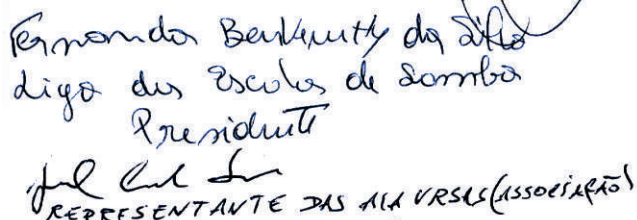 Fernanda Benvenutty da Silva
Liga das Escolas de Samba
Presidente
REPRESENTANTE DAS ALA URSAS (ASSOCIAÇÃO)